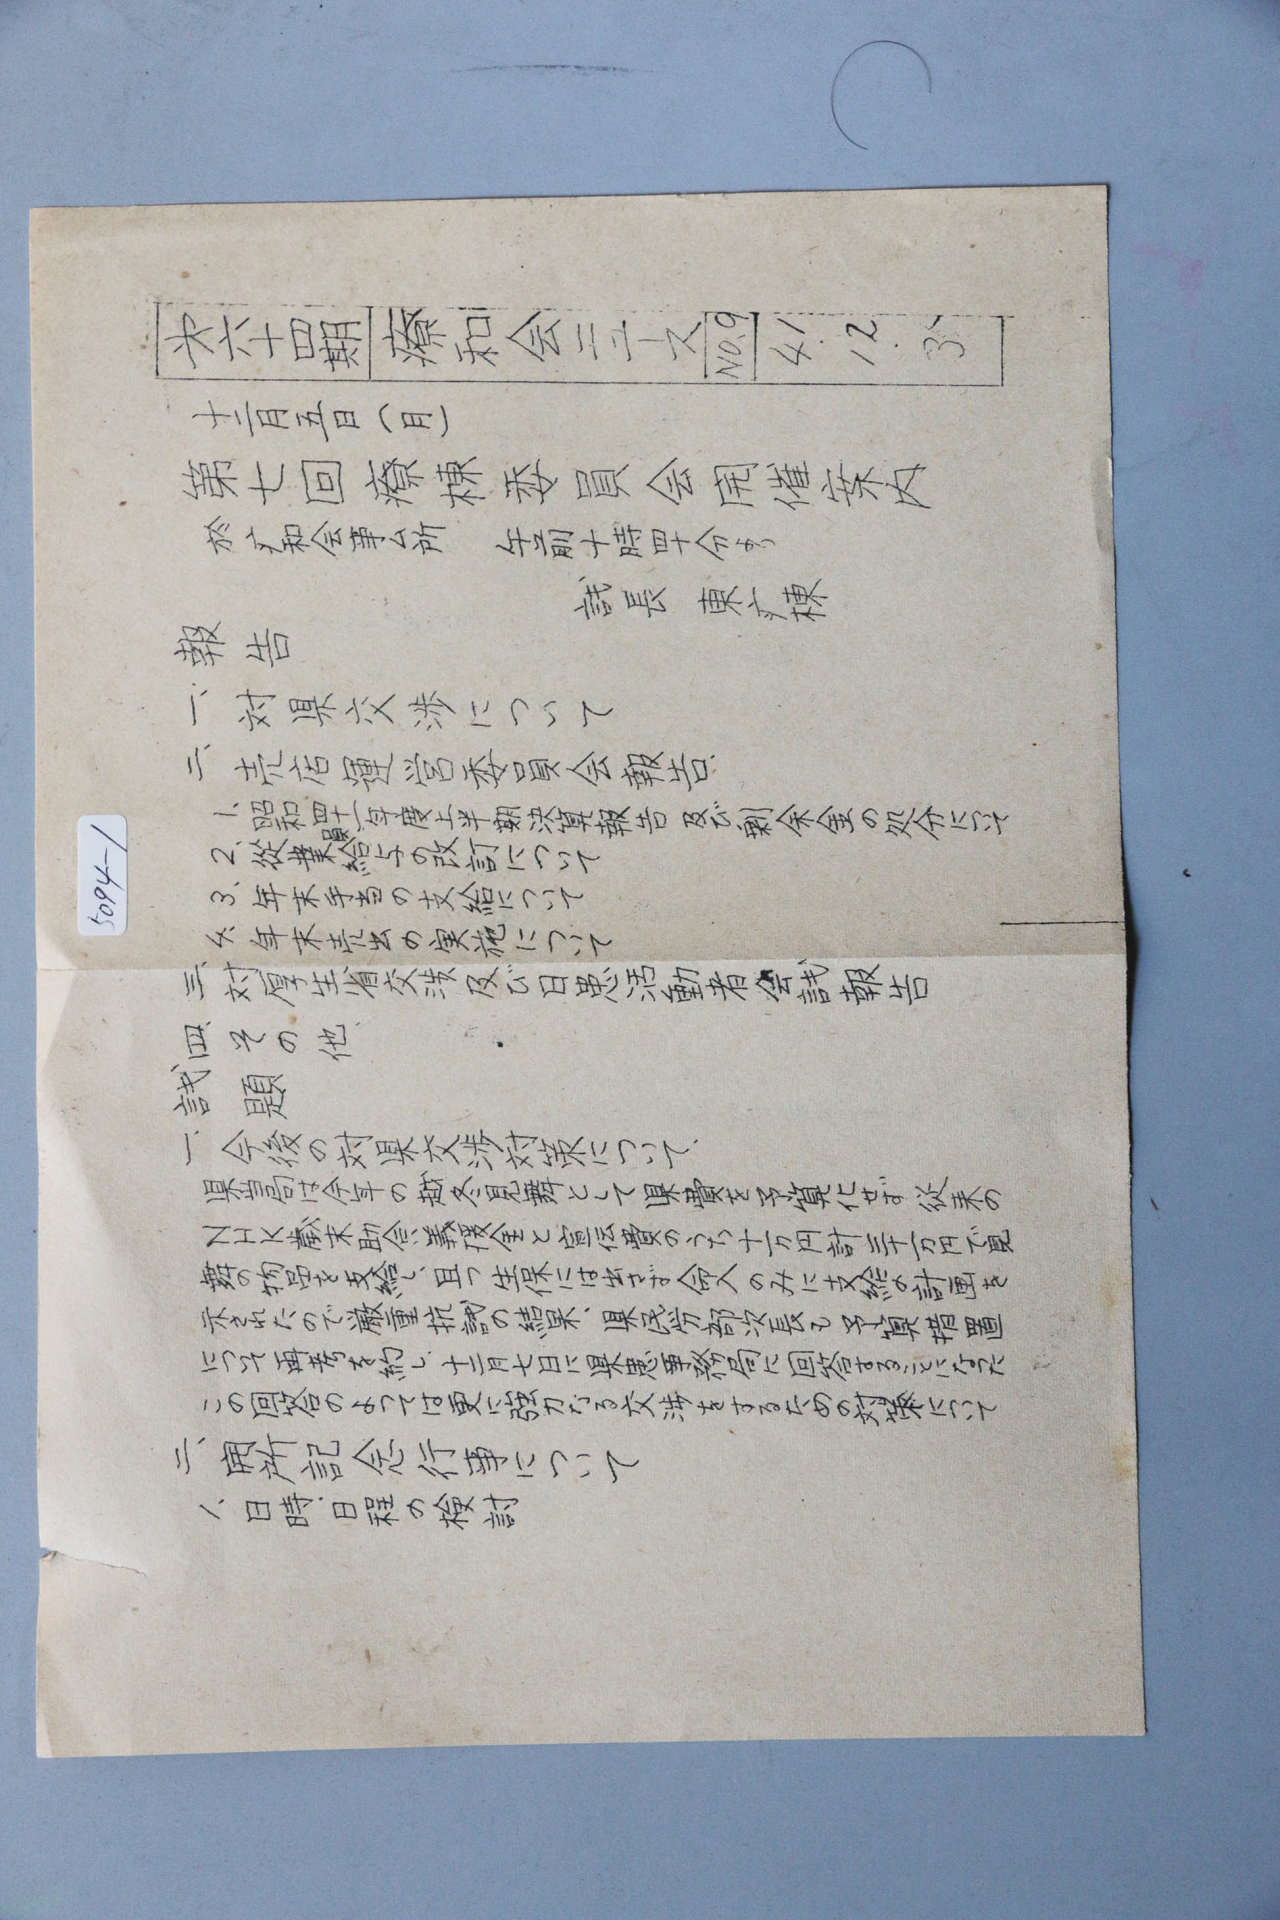 才六十四期 療和会ニュース NO.9 41.12.3
十二月五日(月)
第七回療棟委員会開催案内
於疒和会事ム所 午前十時四十分より
議長 東疒棟
報告
一、対県交渉について
二、売店運営委員会報告
1、昭和四十一年度上半期決算報告及び剰余金の処分について
2、従業員給与の改訂について
3、年末手当の支給について
4、年末売出の実施について
三、対厚生省交渉及び日患活動者会議報告
四、その他
議題
一、今後の対県交渉対策について、
県当局は今年の越冬見舞として県費を予算化せず従来の
NHK歳末助合義援金と宣伝費のうち十一万円計三十一万円で見
舞の物品を支給し、且つ生保には出さず命入のみに支給の計画を
示されたので厳重抗議の結果、県民労部次長も予算措置
について再考を約し、十二月七日に県患事務局に回答することになった
この回答のよっては更に強力なる交渉をするための対策について
二、開所記念行事について
1、日時、日程の検討
5094-1